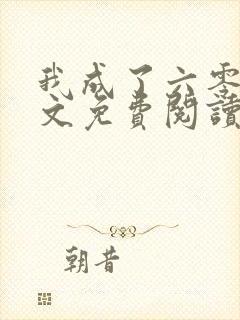 我成了六零
文免費閱讀
朝昔